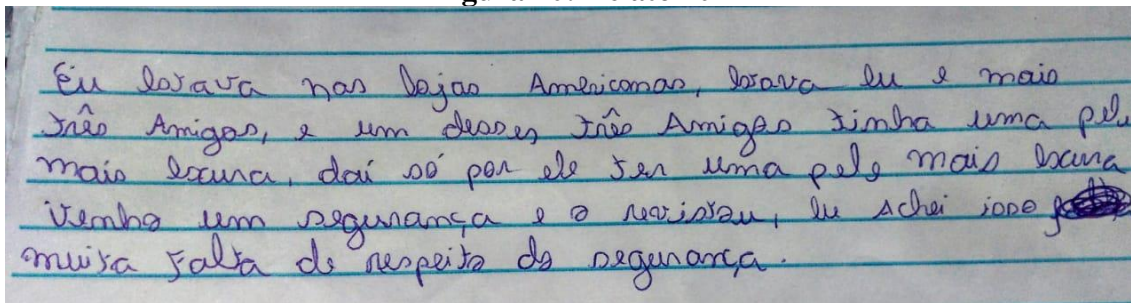 Eu estava nas lojas Americanas, estava eu e mais
três Amigos, e um desses três Amigos tinha uma pele
mais escura, daí só por ele ter uma pele mais escura
venho um segurança e o revistou, eu Achei isso
muita falta de respeito do segurança.